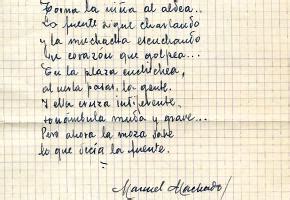 Torna la niña al aldea..
La fuente sigue charlando
y la muchacha escuchando
un corazón que golpea...
En la plaza cuchichea,
al verla pasar, la gente.
Y ella cruza indiferente,
sonámbula muda y grave...
Pero ahora la moza sabe
lo que decía la fuente.
Manuel Machado/